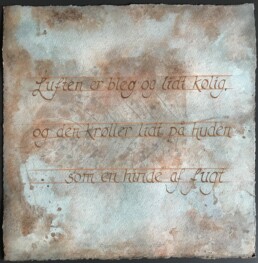 Luften er bleg og lidt kølig,
og den krøller lidt på huden
som en hinde af fugt